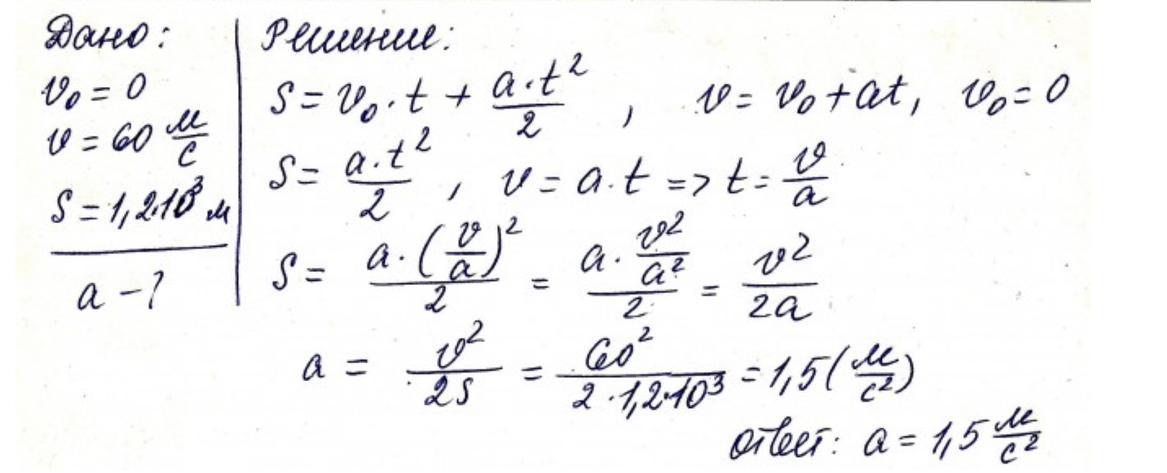 Дано:
v₀ = 0
v = 60 м/с
S = 1,2·10³ м
a – ?
Решение:
S = v₀·t + a·t²/2 , v = v₀ + at, v₀ = 0
S = a·t²/2 , v = a·t => t = v/a
S = a·(v/a)²/2 = a·v²/a²/2 = v²/2a
a = v²/2S = 60²/2·1,2·10³ = 1,5 (м/с²)
ответ: a = 1,5 м/с²